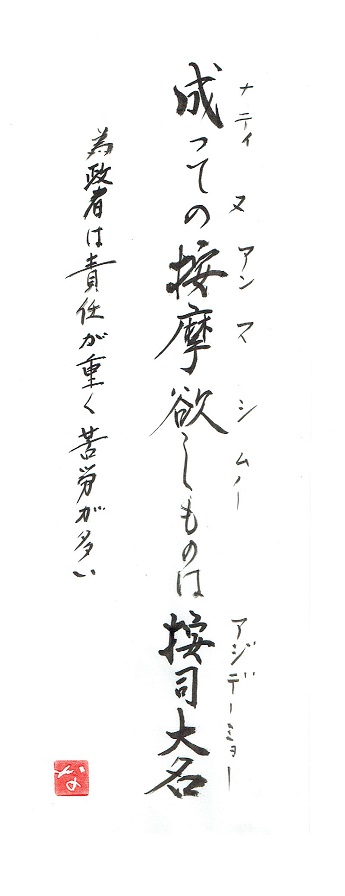 ナティ ヌ アンマ シムノー アジデーミョー
成っての按摩欲しものは按司大名
為政者は責任が重く苦労が多い
な